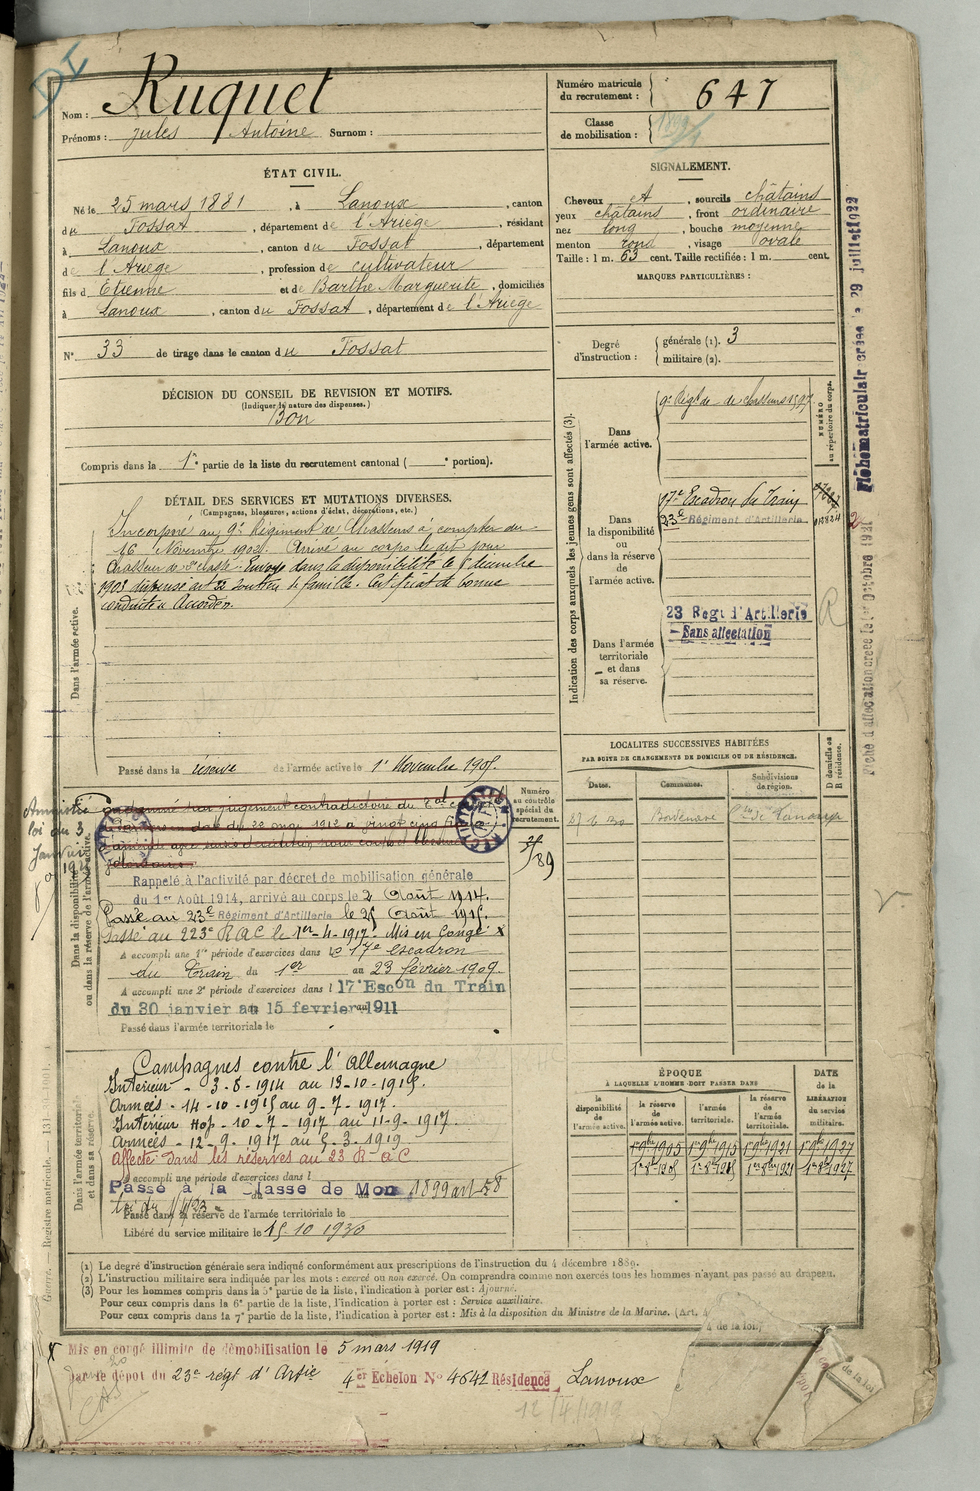 DI
Nom : Ruquet
Prénoms : Jules Antoine Surnom :
Numéro matricule du recrutement : 647
Classe de mobilisation :
ÉTAT CIVIL.
Né le 25 mars 1881, à Lanoux, canton
du Fossat, département de l'Ariège, résidant
à Lanoux, canton du Fossat, département
de l'Ariège, profession de cultivateur
fils d Etienne et de Barthe Marguerite, domiciliés
à Lanoux, canton du Fossat, département de l'Ariège
N° 33 de tirage dans le canton du Fossat
SIGNALEMENT.
Cheveux et, sourcils châtains
yeux châtains, front ordinaire
nez long, bouche moyenne
menton rond, visage ovale
Taille : 1 m. 63 cent. Taille rectifiée : 1 m. cent.
MARQUES PARTICULIÈRES :
Degré d'instruction : générale (1). 3
militaire (2).
DÉCISION DU CONSEIL DE REVISION ET MOTIFS.
(Indiquer la nature des dispenses.)
Bon
Compris dans la 1re partie de la liste du recrutement cantonal ( portion).
DÉTAIL DES SERVICES ET MUTATIONS DIVERSES.
(Campagnes, blessures, actions d'éclat, décorations, etc.)
Dans l'armée active.
Incorporé au 9e Régiment de Chasseurs à compter du
16 Novembre 1902. Arrivé au corps le dit jour
Chasseur de 2e classe. Envoyé dans la disponibilité le 8 décembre
1903 dispensé art 22 soutien de famille. Certificat de bonne
conduite Accordé.
Passé dans la réserve de l'armée active le 1er Novembre 1905.
Indication des corps auxquels les jeunes gens sont affectés (3).
NUMÉRO au répertoire du corps.
Dans l'armée active.
9e Régt de chasseurs 1597
Dans la disponibilité ou dans la réserve de l'armée active.
17e Escadron du Train
23e Régiment d'Artillerie
Dans l'armée territoriale et dans sa réserve.
23 Regt d'Artillerie
Sans affectation
R
Fiche matriculaire créée le 29 juillet 1922
Fiche d'affectation créée le 1er Octobre 1921
Dans la disponibilité ou dans la réserve de l'armée active.
Amnistié
loi du 3
Janvier
RECTIFICATION
Numéro au contrôle spécial du recrutement.
89
Rappelé à l'activité par décret de mobilisation générale
du 1er Août 1914, arrivé au corps le 2 Août 1914.
Passé au 23e Régiment d'Artillerie le 25 Août 1915.
Passé au 223e RAC le 1er-4-1917. Mis en Congé X
A accompli une 1re période d'exercices dans le 17e Escadron
du Train du 1er au 23 février 1909.
A accompli une 2e période d'exercices dans l 17e Escon du Train
du 30 janvier au 15 fevrier 1911
Passé dans l'armée territoriale le
LOCALITÉS SUCCESSIVES HABITÉES
PAR SUITE DE CHANGEMENTS DE DOMICILE OU DE RÉSIDENCE.
Dates. Communes. Subdivisions de région. D domicile ou R résidence.
Dans l'armée territoriale et dans sa réserve.
Campagnes contre l'Allemagne
Intérieur - 3-8-1914 au 13-10-1915.
Armées - 14-10-1915 au 9-7-1917.
Intérieur Hop - 10-7-1917 au 11-9-1917.
Armées - 12-9-1917 au 5-3-1919
Affecté dans les réserves au 23 RAC
A accompli une période d'exercices dans l
Passé à la Classe de Mon 1899 art 58
Passé dans la réserve de l'armée territoriale le
Libéré du service militaire le 15-10 1930
ÉPOQUE
À LAQUELLE L'HOMME DOIT PASSER DANS
DATE de la LIBÉRATION du service militaire.
la disponibilité de l'armée active. la réserve de l'armée active. l'armée territoriale. la réserve de l'armée territoriale.
1er 9bre 1905 1er 9bre 1915 1er 9bre 1921 1er 9bre 1927
(1) Le degré d'instruction générale sera indiqué conformément aux prescriptions de l'instruction du 4 décembre 1889.
(2) L'instruction militaire sera indiquée par les mots : exercé ou non exercé. On comprendra comme non exercés tous les hommes n'ayant pas passé au drapeau.
(3) Pour les hommes compris dans la 5e partie de la liste, l'indication à porter est : Ajourné.
Pour ceux compris dans la 6e partie de la liste, l'indication à porter est : Service auxiliaire.
Pour ceux compris dans la 7e partie de la liste, l'indication à porter est : Mis à la disposition du Ministre de la Marine. (Art. 4
4 de la loi)
de la loi
X Mis en congé illimité de démobilisation le 5 mars 1919
par le dépôt du 23e régt d'Artie 4er Echelon N° 4641 Résidence Lanoux
12/4/1919
Guerre. — Registre matricule. — 131